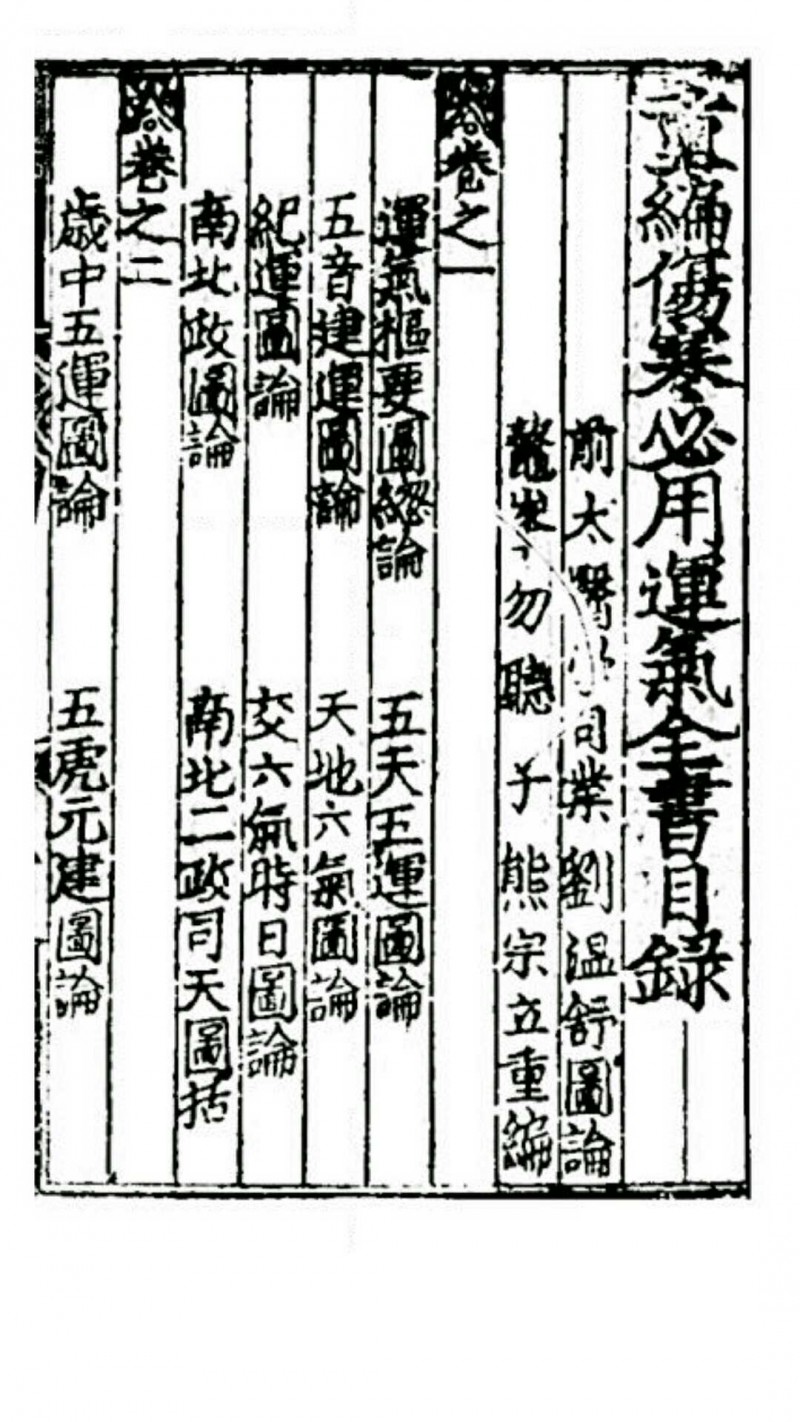 編傷寒必用運氣全書目錄
前太醫 司業劉温舒圖論
鼇峯 勿聽子熊宗立重編
卷之一
運氣樞要圖總論 五天五運圖論
五音建運圖論 天地六氣圖論
紀運圖論 交六氣時日圖論
南北政圖論 南北二政司天圖括
卷之二
歳中五運圖論 五虎元建圖論